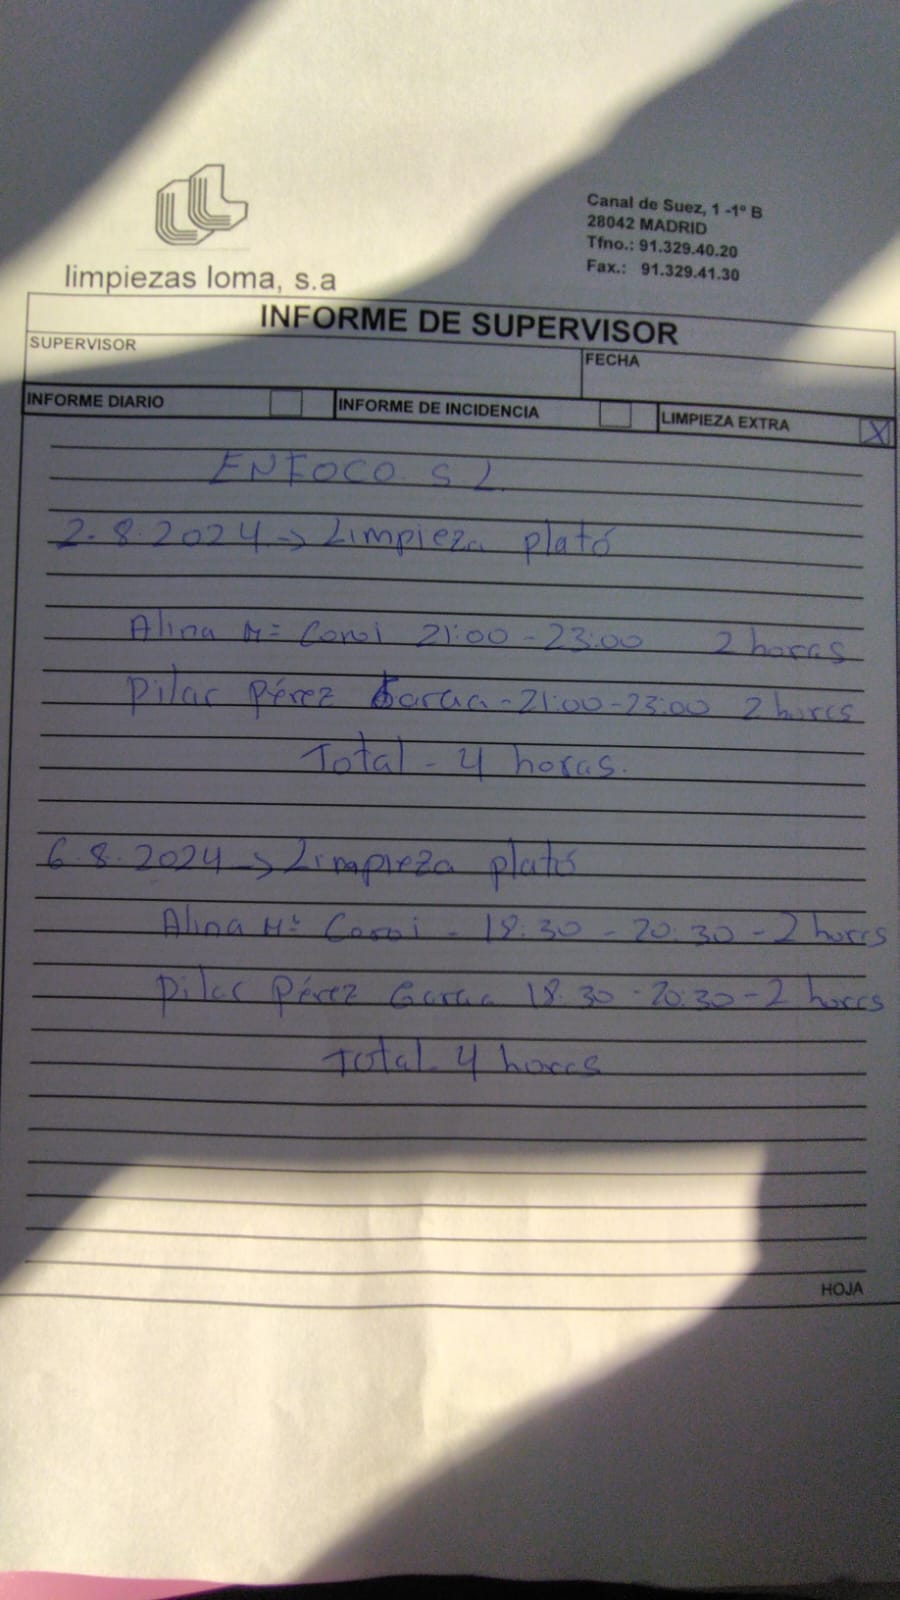 limpiezas loma, s.a
Canal de Suez, 1 -1º B
28042 MADRID
Tfno.: 91.329.40.20
Fax.: 91.329.41.30
INFORME DE SUPERVISOR
SUPERVISOR
FECHA
INFORME DIARIO
INFORME DE INCIDENCIA
LIMPIEZA EXTRA X
ENFOCO S L
2.8.2024 -> Limpieza plató
Alina Mª Coroi 21:00 - 23:00 2 horas
Pilar Pérez Garcia - 21:00 - 23:00 2 horas
Total - 4 horas.
6.8.2024 -> Limpieza plató
Alina Mª Coroi - 18:30 - 20:30 - 2 horas
Pilar Pérez Garcia 18:30 - 20:30 - 2 horas
Total - 4 horas
HOJA